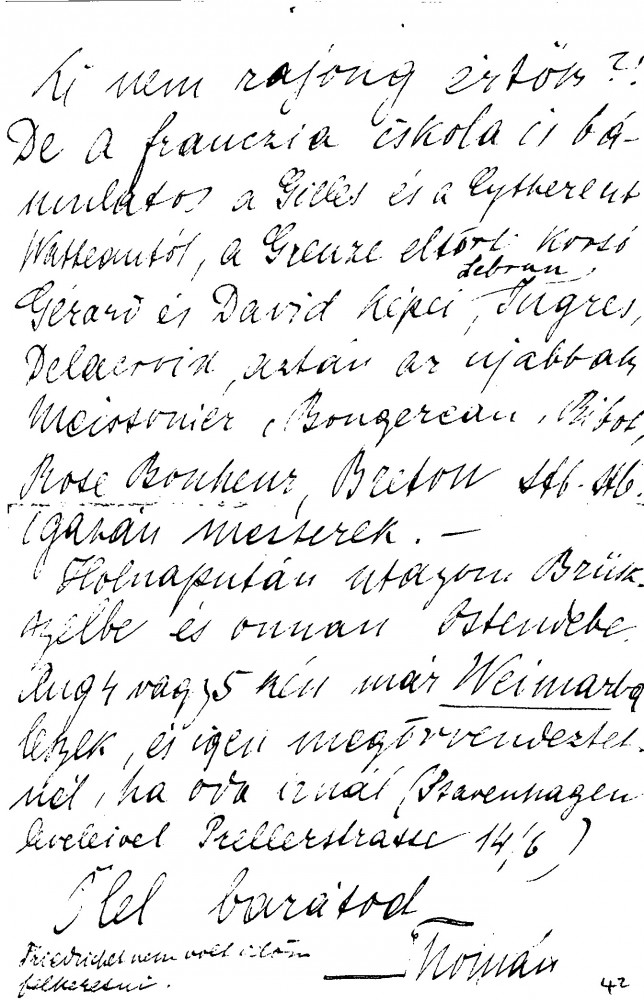 Ki nem rajong értök?!
De a franczia iskola is bá-
mulatos a Gilles és a Cythere ut
Watteautól, a Greuze eltört Korsó
Lebrun
Gérard és David képei, Ingres,
Delacroix, aztán az ujabbak
Meissonier, Bougereau, Ribot,
Rose Bonheur, Breton stb. stb.
igazán mesterek. —
Holnapután utazom Brük-
szelbe és onnan Ostendebe.
Aug 4 vagy 5 kén már Weimarba
leszek, és igen megörvendeztet-
nél, ha oda irnál (Stavenhagen
leveleivel Prellerstrasse 14/6)
Ölel barátod
Thomán
Friedrichet nem volt időm
felkeresni.
42